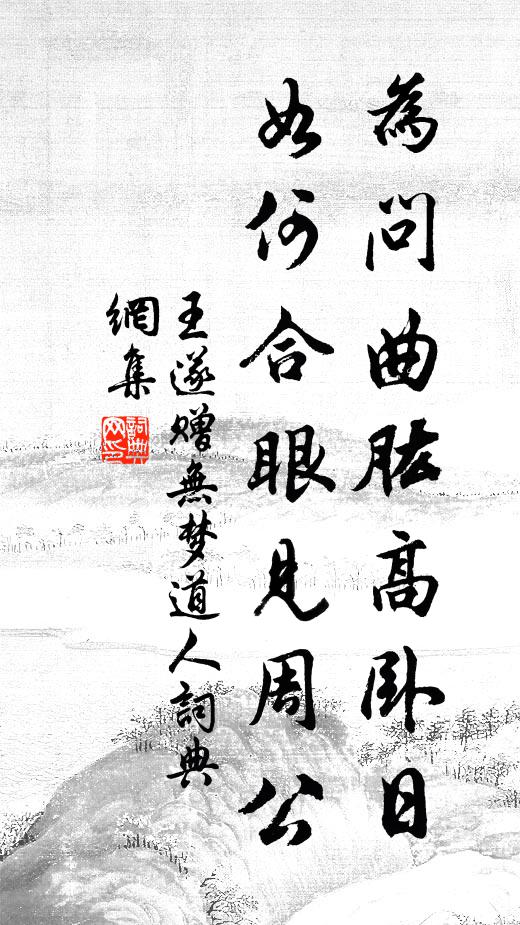 為問曲肱高卧日
如何合眼見周公
王遂贈無梦道人詞典
網集
詞典
网印